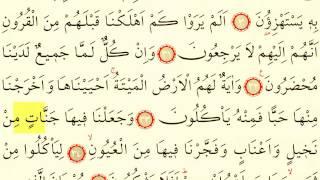 بِهِ يَسْتَهْزِؤُنَ ﴿٣٠﴾ أَلَمْ يَرَوْا كَمْ أَهْلَكْنَا قَبْلَهُمْ مِنَ الْقُرُونِ
أَنَّهُمْ إِلَيْهِمْ لَا يَرْجِعُونَ ﴿٣١﴾ وَإِنْ كُلٌّ لَمَّا جَمِيعٌ لَدَيْنَا
مُحْضَرُونَ ﴿٣٢﴾ وَآيَةٌ لَهُمُ الْأَرْضُ الْمَيْتَةُ أَحْيَيْنَاهَا وَأَخْرَجْنَا
مِنْهَا حَبًّا فَمِنْهُ يَأْكُلُونَ ﴿٣٣﴾ وَجَعَلْنَا فِيهَا جَنَّاتٍ مِنْ
نَخِيلٍ وَأَعْنَابٍ وَفَجَّرْنَا فِيهَا مِنَ الْعُيُونِ ﴿٣٤﴾ لِيَأْكُلُوا مِنْ